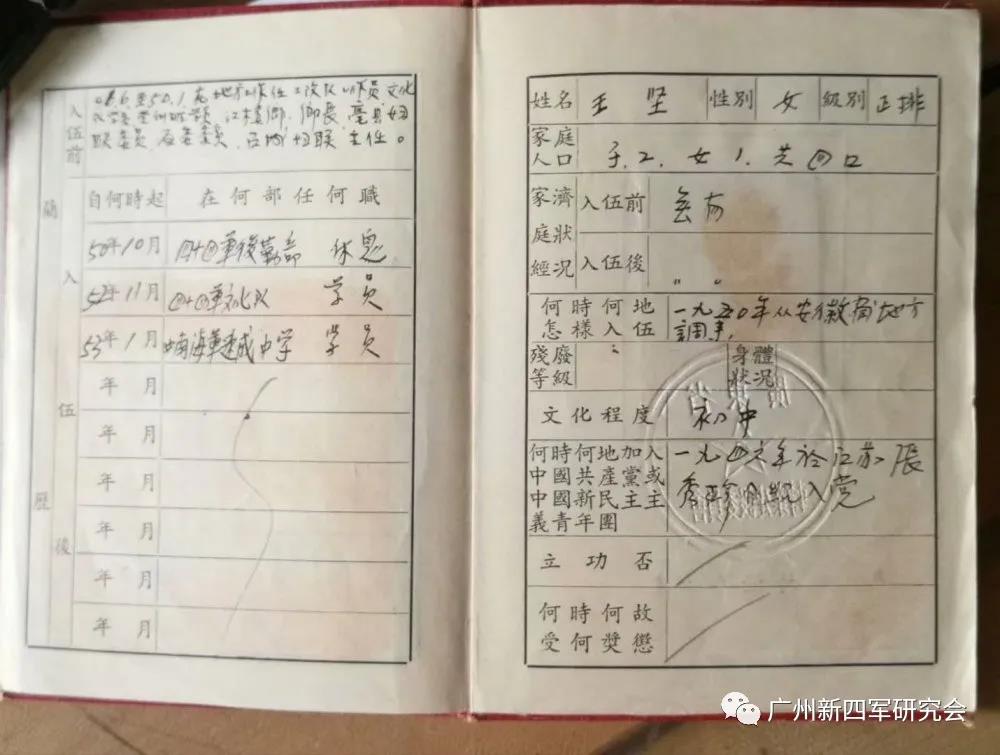 入伍前
至50.1 地方工作任 队 员 文化
江 乡 乡长 亳县妇
联委员 委员 妇联主任。
簡歷
入伍後
自何時起 在何部任何職
50年10月 四十四军後勤部 休息
52年11月 四十四军文化队 学员
53年1月 中南海军速成中学 学员
年 月
年 月
年 月
年 月
年 月
年 月
姓名 王坚 性別 女 級別 正排
家庭人口 子.2. 女1. 共四口
家庭經濟狀況 入伍前
入伍後 〃 〃
何時何地 一九五〇年从安徽 地方
怎樣入伍 調来.
殘廢 身體
等級 狀况
文化程度 初中
何時何地加入 一九四六年於江苏 張
中國共產黨或 秀珍 入党
中國新民主主
義青年團
立功否
何時何故
受何奬懲
广州新四军研究会